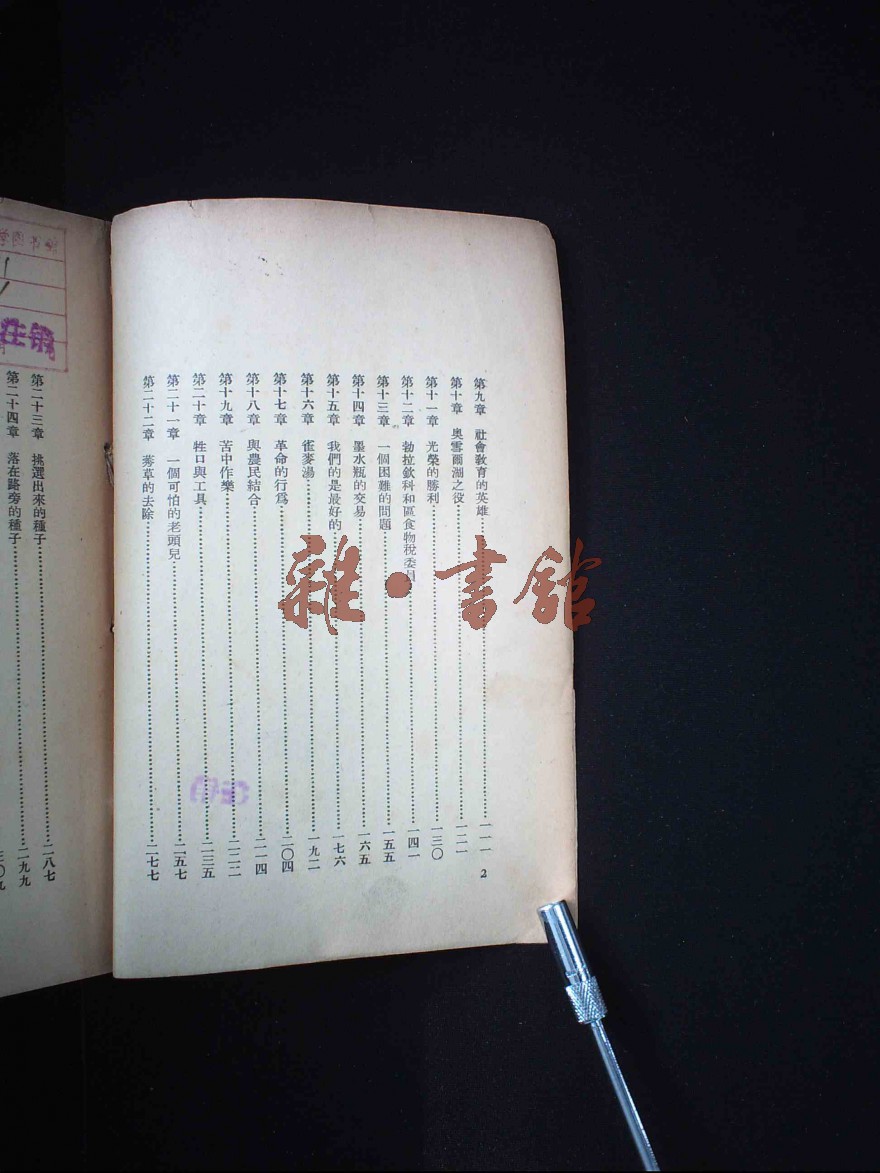 第九章　社會教育的英雄……一一一
第十章　奧雪爾湖之役……一二一
第十一章　光榮的勝利……一三〇
第十二章　勃拉欽科和區食物稅委員……一四一
第十三章　一個困難的問題……一五五
第十四章　墨水瓶的交易……一六五
第十五章　我們的是最好的……一七六
第十六章　雀麥湯……一九二
第十七章　革命的行爲……二〇四
第十八章　與農民結合……二一四
第十九章　苦中作樂……二二二
第二十章　牲口與工具……二三五
第二十一章　一個可怕的老頭兒……二五七
第二十二章　莠草的去除……二七七
2
第二十三章　挑選出來的種子……二八七
第二十四章　落在路旁的種子……二九九
三〇九
学图书館
注销
雜·書館